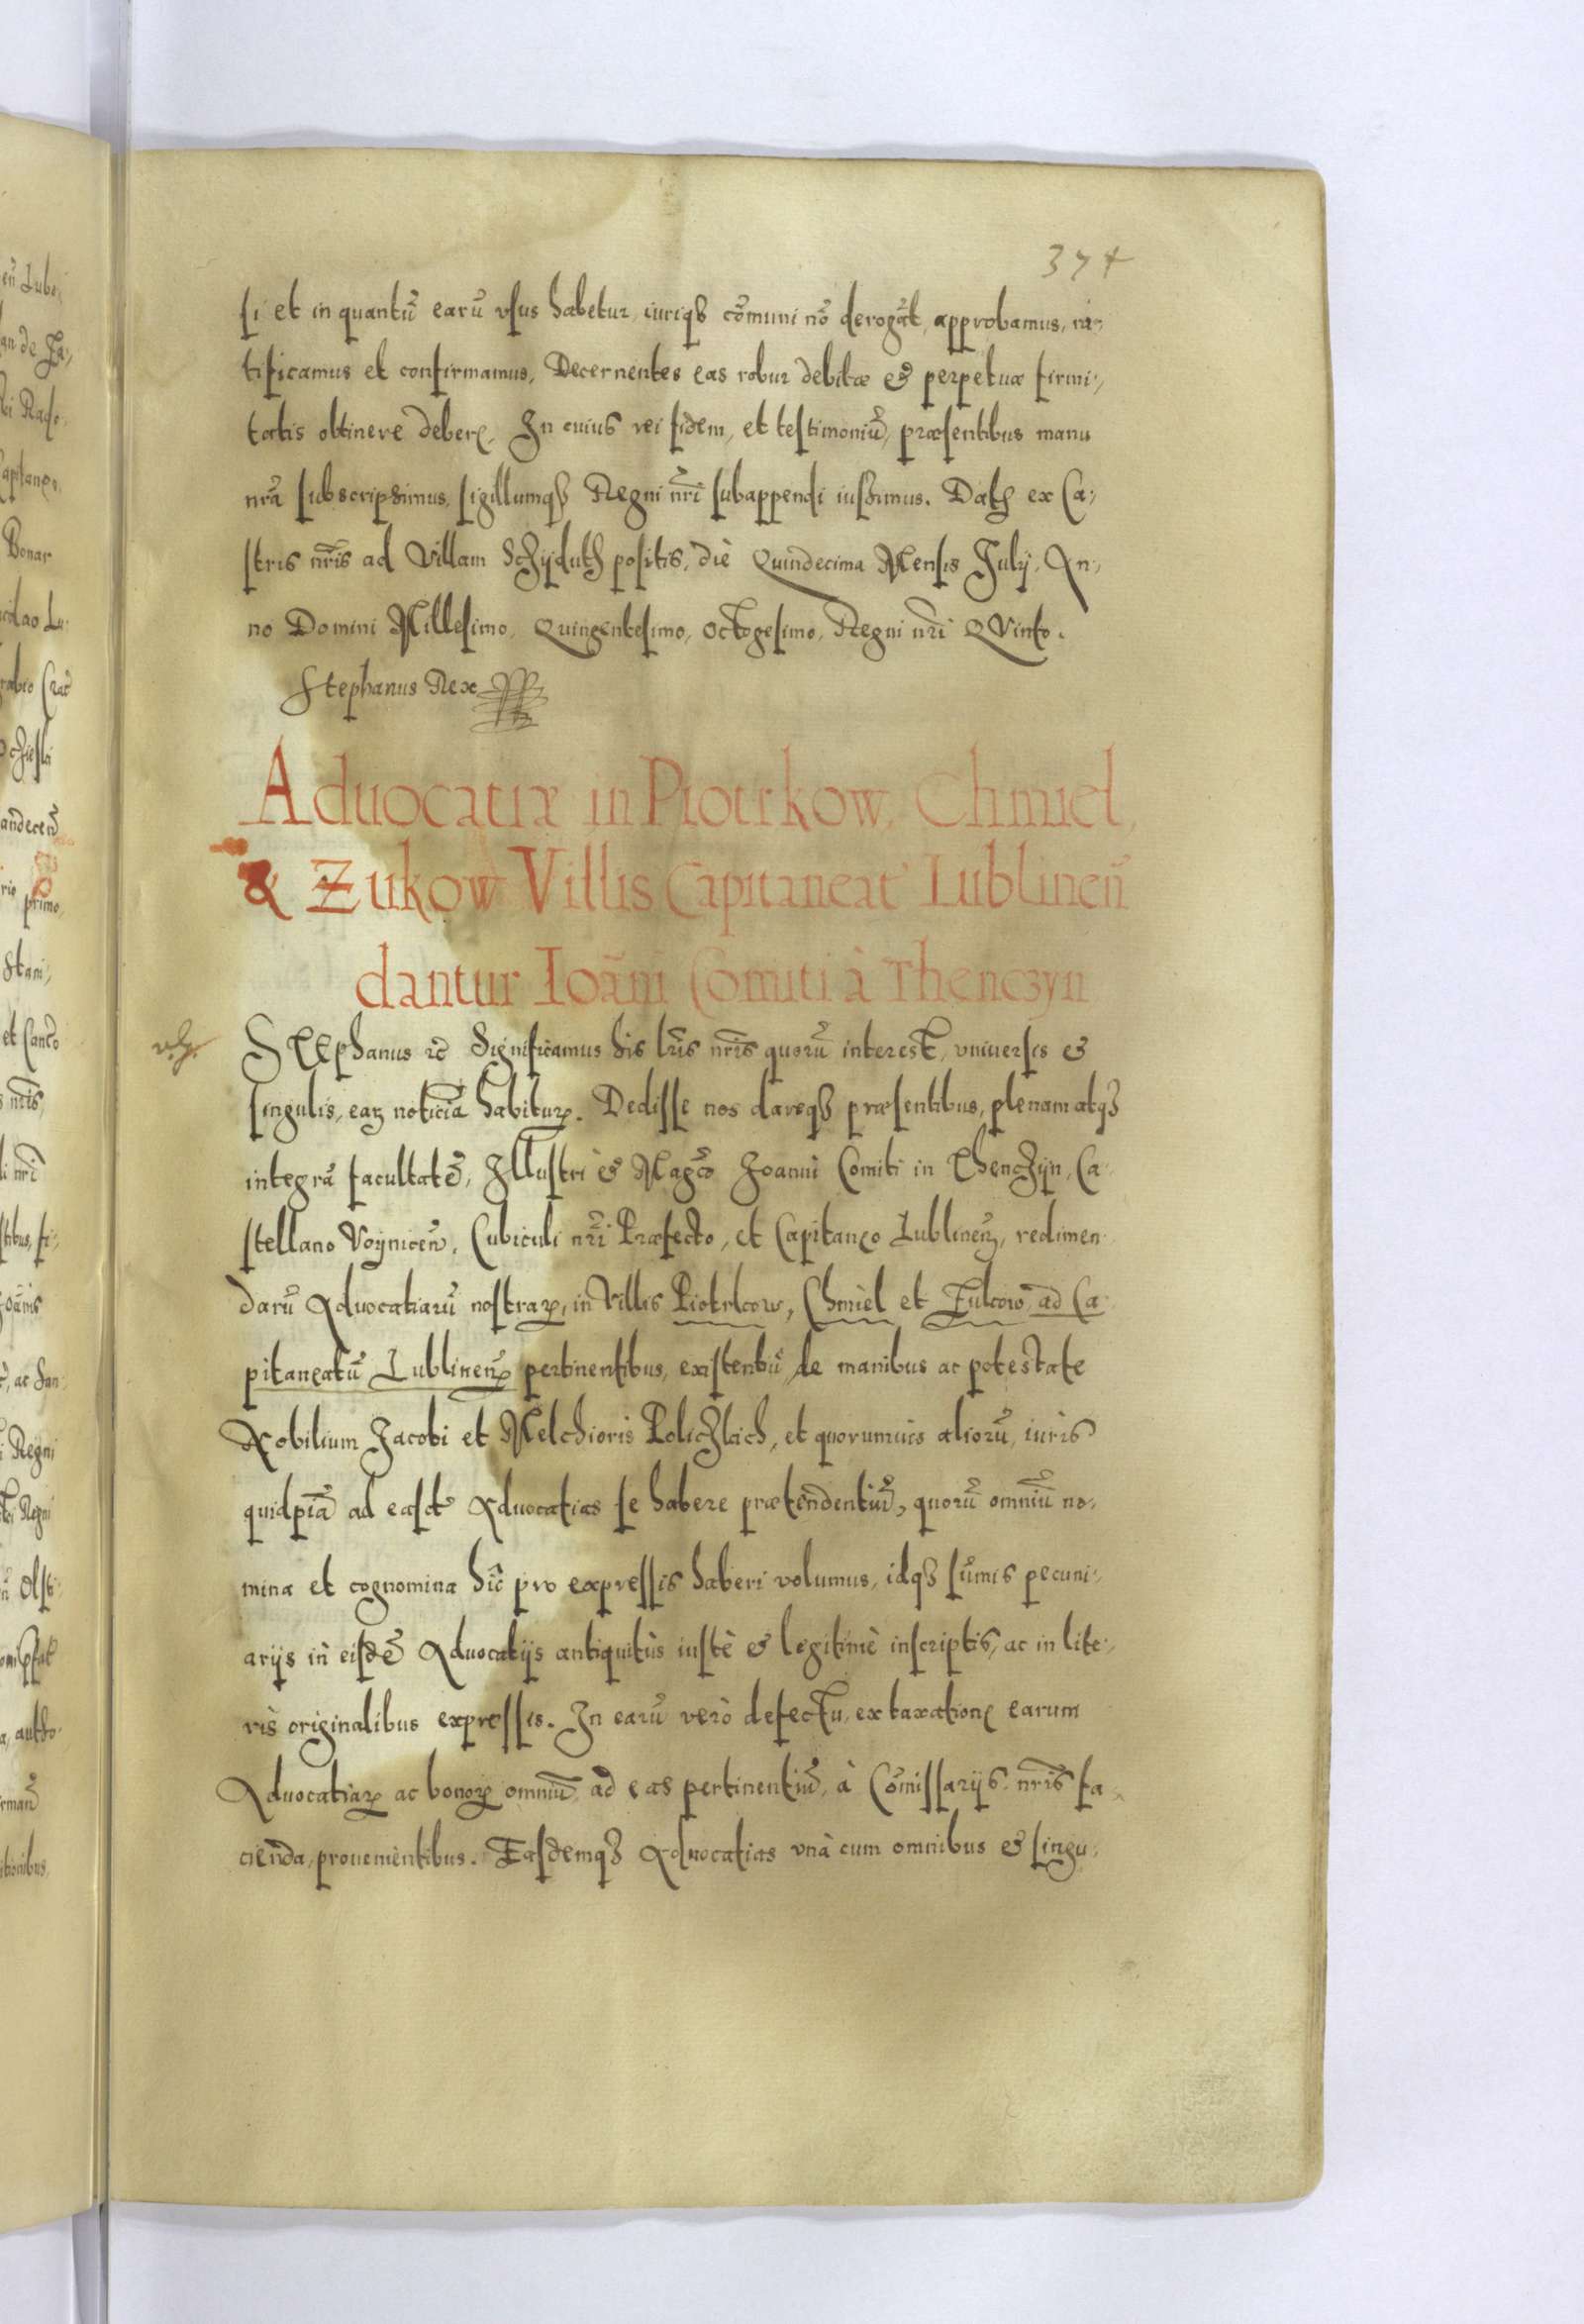 374
si et in quantũ earũ vsus habetur, iuriqȝ cõmuni nõ derogãt, approbamus, ra-,
tificamus et confirmamus, Decernentes eas robur debitæ & perpetuæ firmi-,
tatis obtinere deberę, In cuius rei fidem, et testimoniũ, præsentibus manu
nrã subscripsimus, sigillumqȝ Regni nr̃i subappendi iussimus. Datȝ ex Ca-,
stris nr̃is ad Villam Sczÿduth positis, diè Quindecima Mensis Julÿ, An-,
no Domini Millesimo, Quingentesimo, Octogesimo, Regni nr̃i QVinto.
Stephanus Rex
Aduocatiæ in Piotrkow, Chmiel,
& Zukow Villis Capitaneat' Lublineñ
dantur Ioãni Comiti à Thenczyn
STEphanus rc̃ Significamus his lr̃is nr̃is quorũ interest, vniuersis &
singulis, earȝ noticiã habiturȝ. Dedisse nos dareqȝ præsentibus, plenam atqȝ
integrã facultatẽ, Illustri & Magc̃o Joanni Comiti in Thenczÿn, Ca-
stellano Voÿniceñ, Cubiculi nr̃i Præfecto, et Capitanęo Lublineñ, redimen-
darũ Aduocatiarũ nostrarȝ, in Villis Piotrkow, Chmiel et Zukow ad Ca-
pitaneatũ Lublineñȝ pertinentibus, existentiũ, de manibus ac potestate
Nobilium Jacobi et Melchioris Policzkich, et quorumuis aliorũ, iuris
quidpiã ad easdẽ Aduocatias se habere prætendentiũ, quorũ omniũ no-,
mina et cognomina hic̃ pro expressis haberi volumus, idqȝ sũmis pecuni-,
arÿs in eisdẽ Aduocatÿs antiquitùs iustè & legitimè inscriptis, ac in lite-,
ris originalibus expressis. In earũ verò defectu, ex taxationę earum
Aduocatiarȝ ac bonorȝ omniũ, ad eas pertinentiũ, à Cõmissarÿs nr̃is fa-
cienda, prouenientibus. Easdemqȝ Aduocatias vnà cum omnibus & singu-,